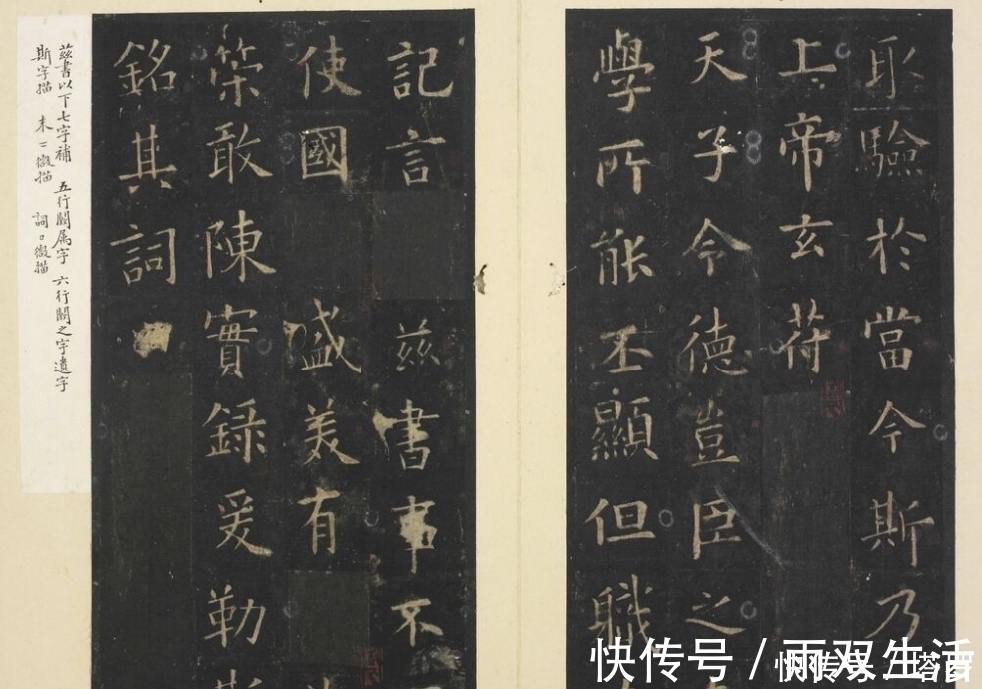 取驗於當今斯乃
上帝玄符
天子令德豈臣之
學所能丕顯但職
記言
茲書事不
使國
盛美有
策敢陳實錄爰勒
銘其詞
茲書以下七字補 五行闕属字 六行闕之字遺字
斯字描 末二微描 詞口微描
快传号 / 雨双生活
快传号